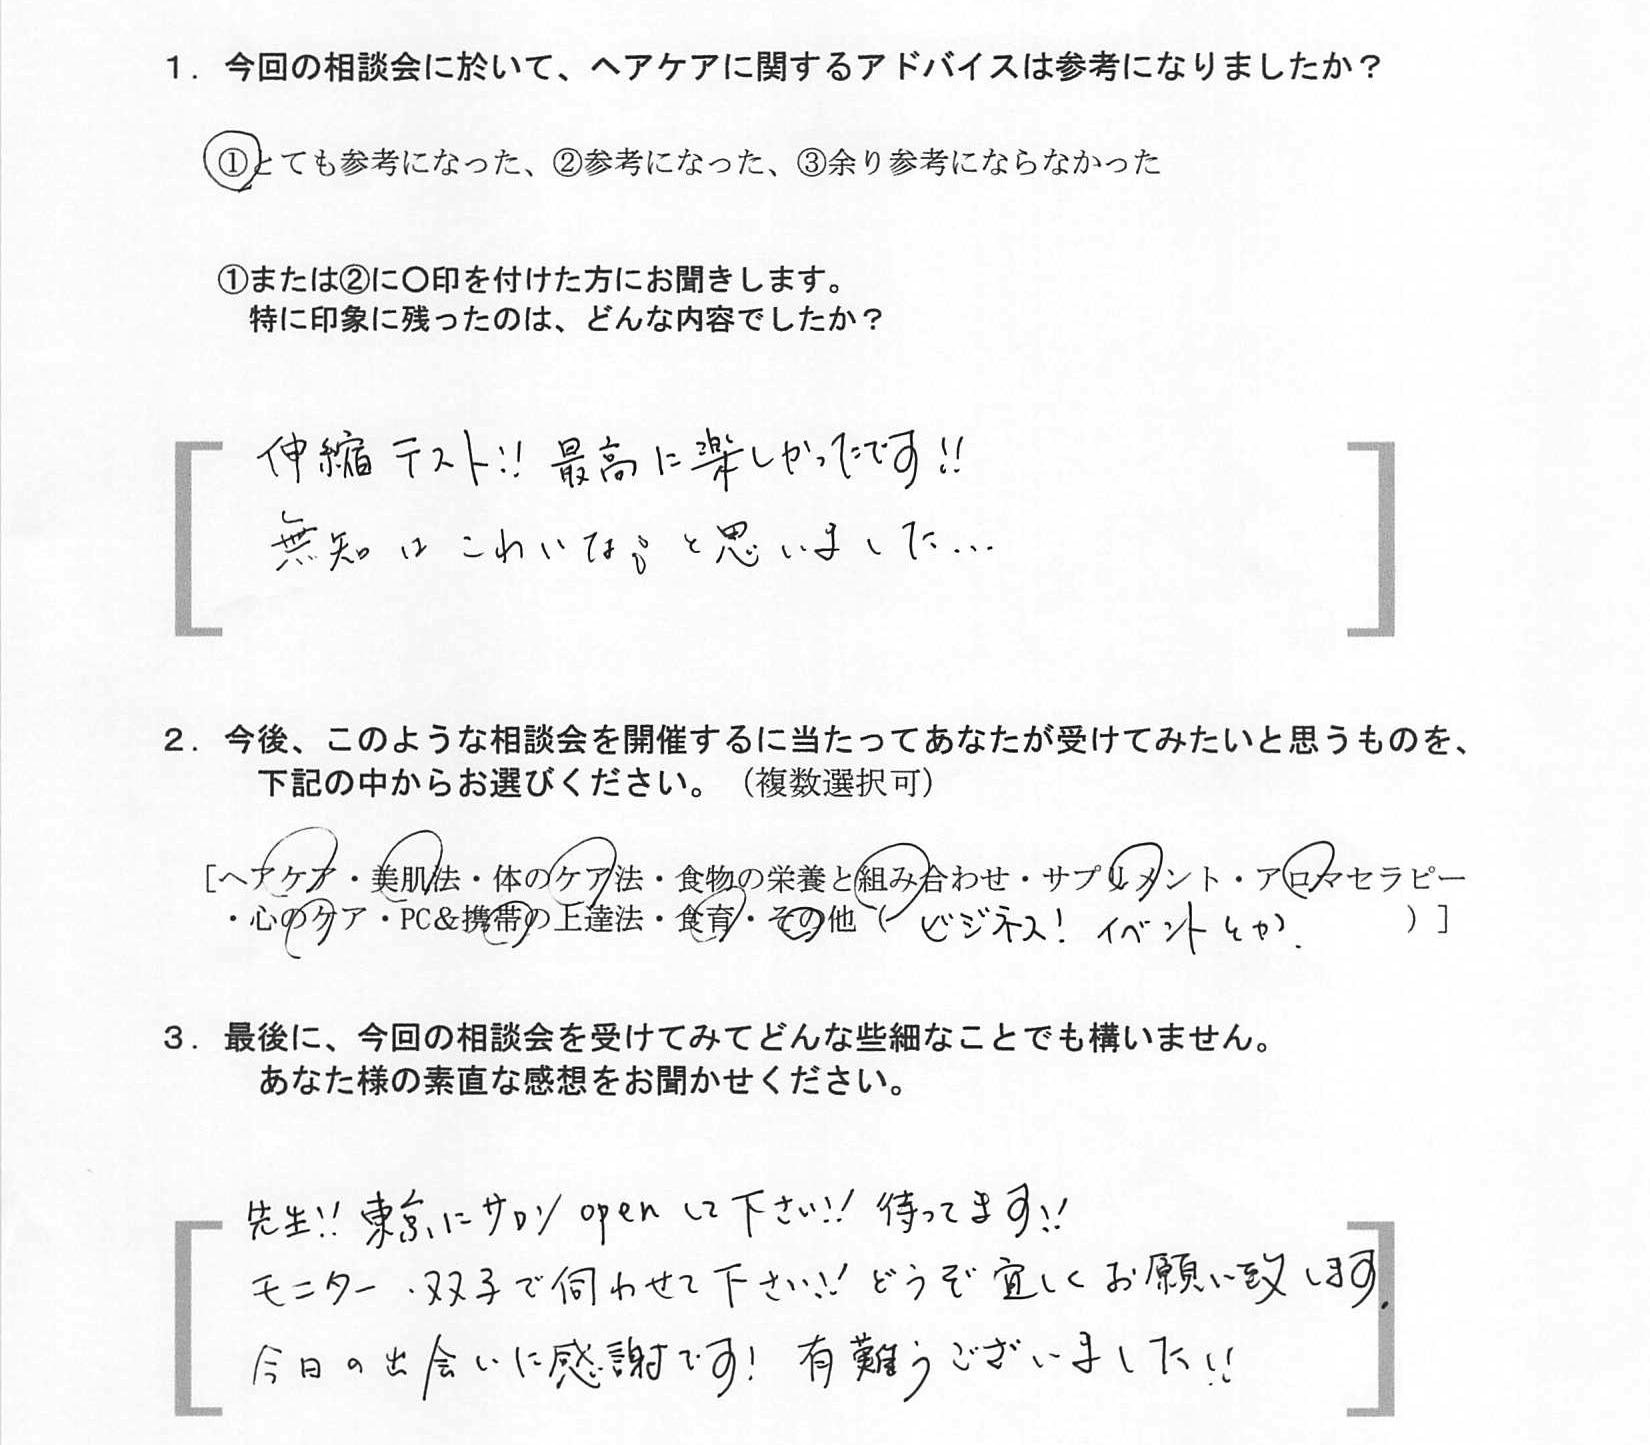 １．今回の相談会に於いて、ヘアケアに関するアドバイスは参考になりましたか？
①とても参考になった、②参考になった、③余り参考にならなかった
①または②に〇印を付けた方にお聞きします。
特に印象に残ったのは、どんな内容でしたか？
伸縮テスト!! 最高に楽しかったです!!
無知はこわいな。と思いました…
２．今後、このような相談会を開催するに当たってあなたが受けてみたいと思うものを、
下記の中からお選びください。（複数選択可）
［ヘアケア・美肌法・体のケア法・食物の栄養と組み合わせ・サプリメント・アロマセラピー
・心のケア・PC＆携帯の上達法・食育・その他（ ビジネス! イベントとか. ）］
３．最後に、今回の相談会を受けてみてどんな些細なことでも構いません。
あなた様の素直な感想をお聞かせください。
先生!! 東京にサロン open して下さい!! 待ってます!!
モニター・双子で伺わせて下さい!! どうぞ宜しくお願い致します.
今日の出会いに感謝です! 有難うございました!!